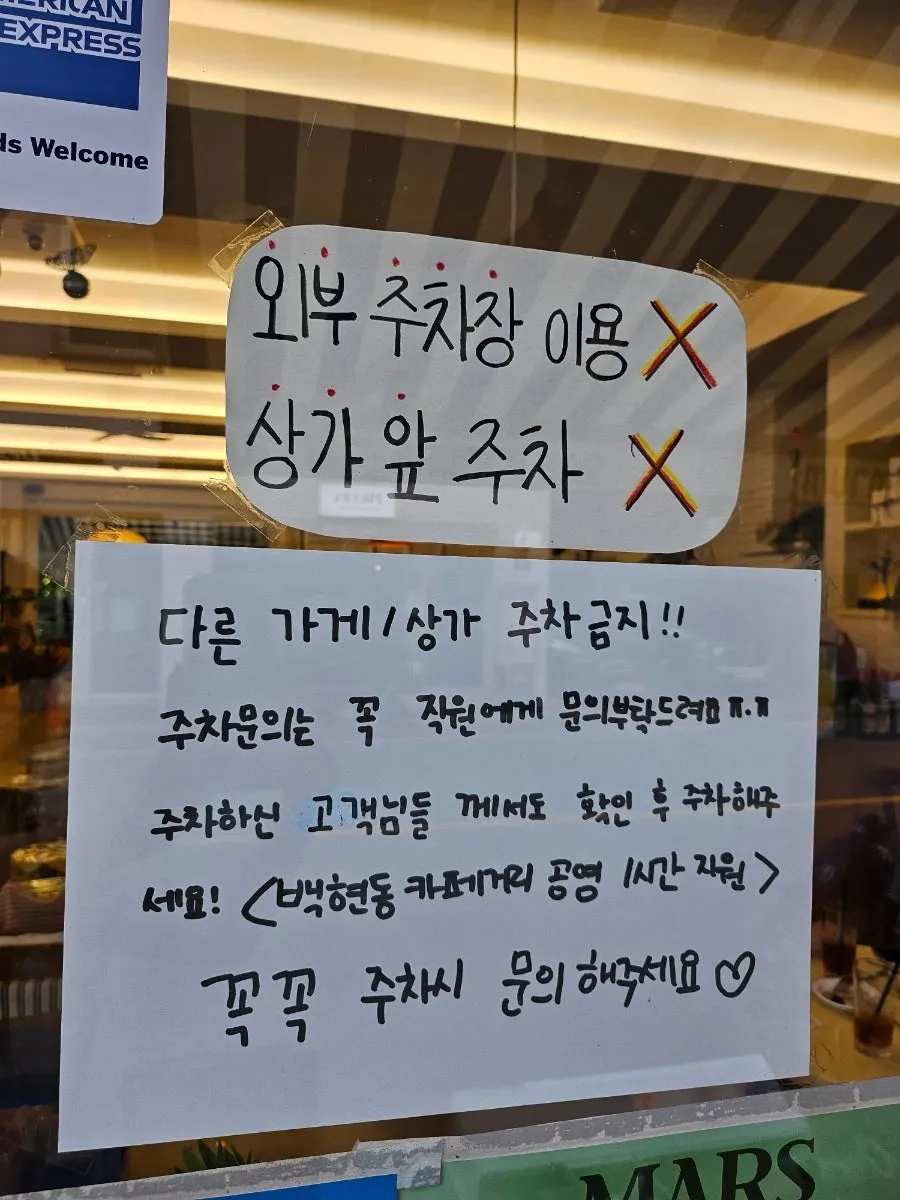 AMERICAN
EXPRESS
ds Welcome
외부 주차장 이용 X
상가 앞 주차 X
다른 가게/상가 주차금지!!
주차문의는 꼭 직원에게 문의부탁드려요 ㅠ.ㅠ
주차하신 고객님들 께서도 확인 후 주차해주
세요! <백현동 카페거리 공영 1시간 지원>
꼭꼭 주차시 문의 해주세요♡
MARS